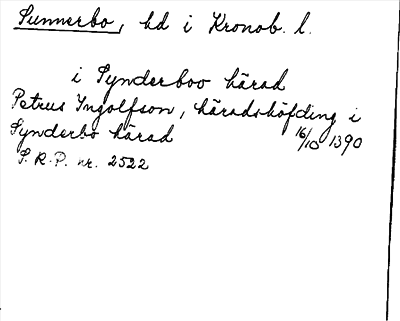 Sunnerbo, hd i Kronob. l.
i Synderboo härad
Petrus Yngolfson, häradshöfding i
Synderbo härad 16/10 1390
S. R. P. nr. 2522